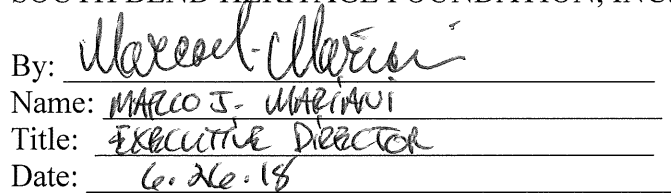 SOUTH BEND HERITAGE FOUNDATION, INC.
By: Marco J. Mariani
Name: MARCO J. MARIANI
Title: EXECUTIVE DIRECTOR
Date: 6.26.18